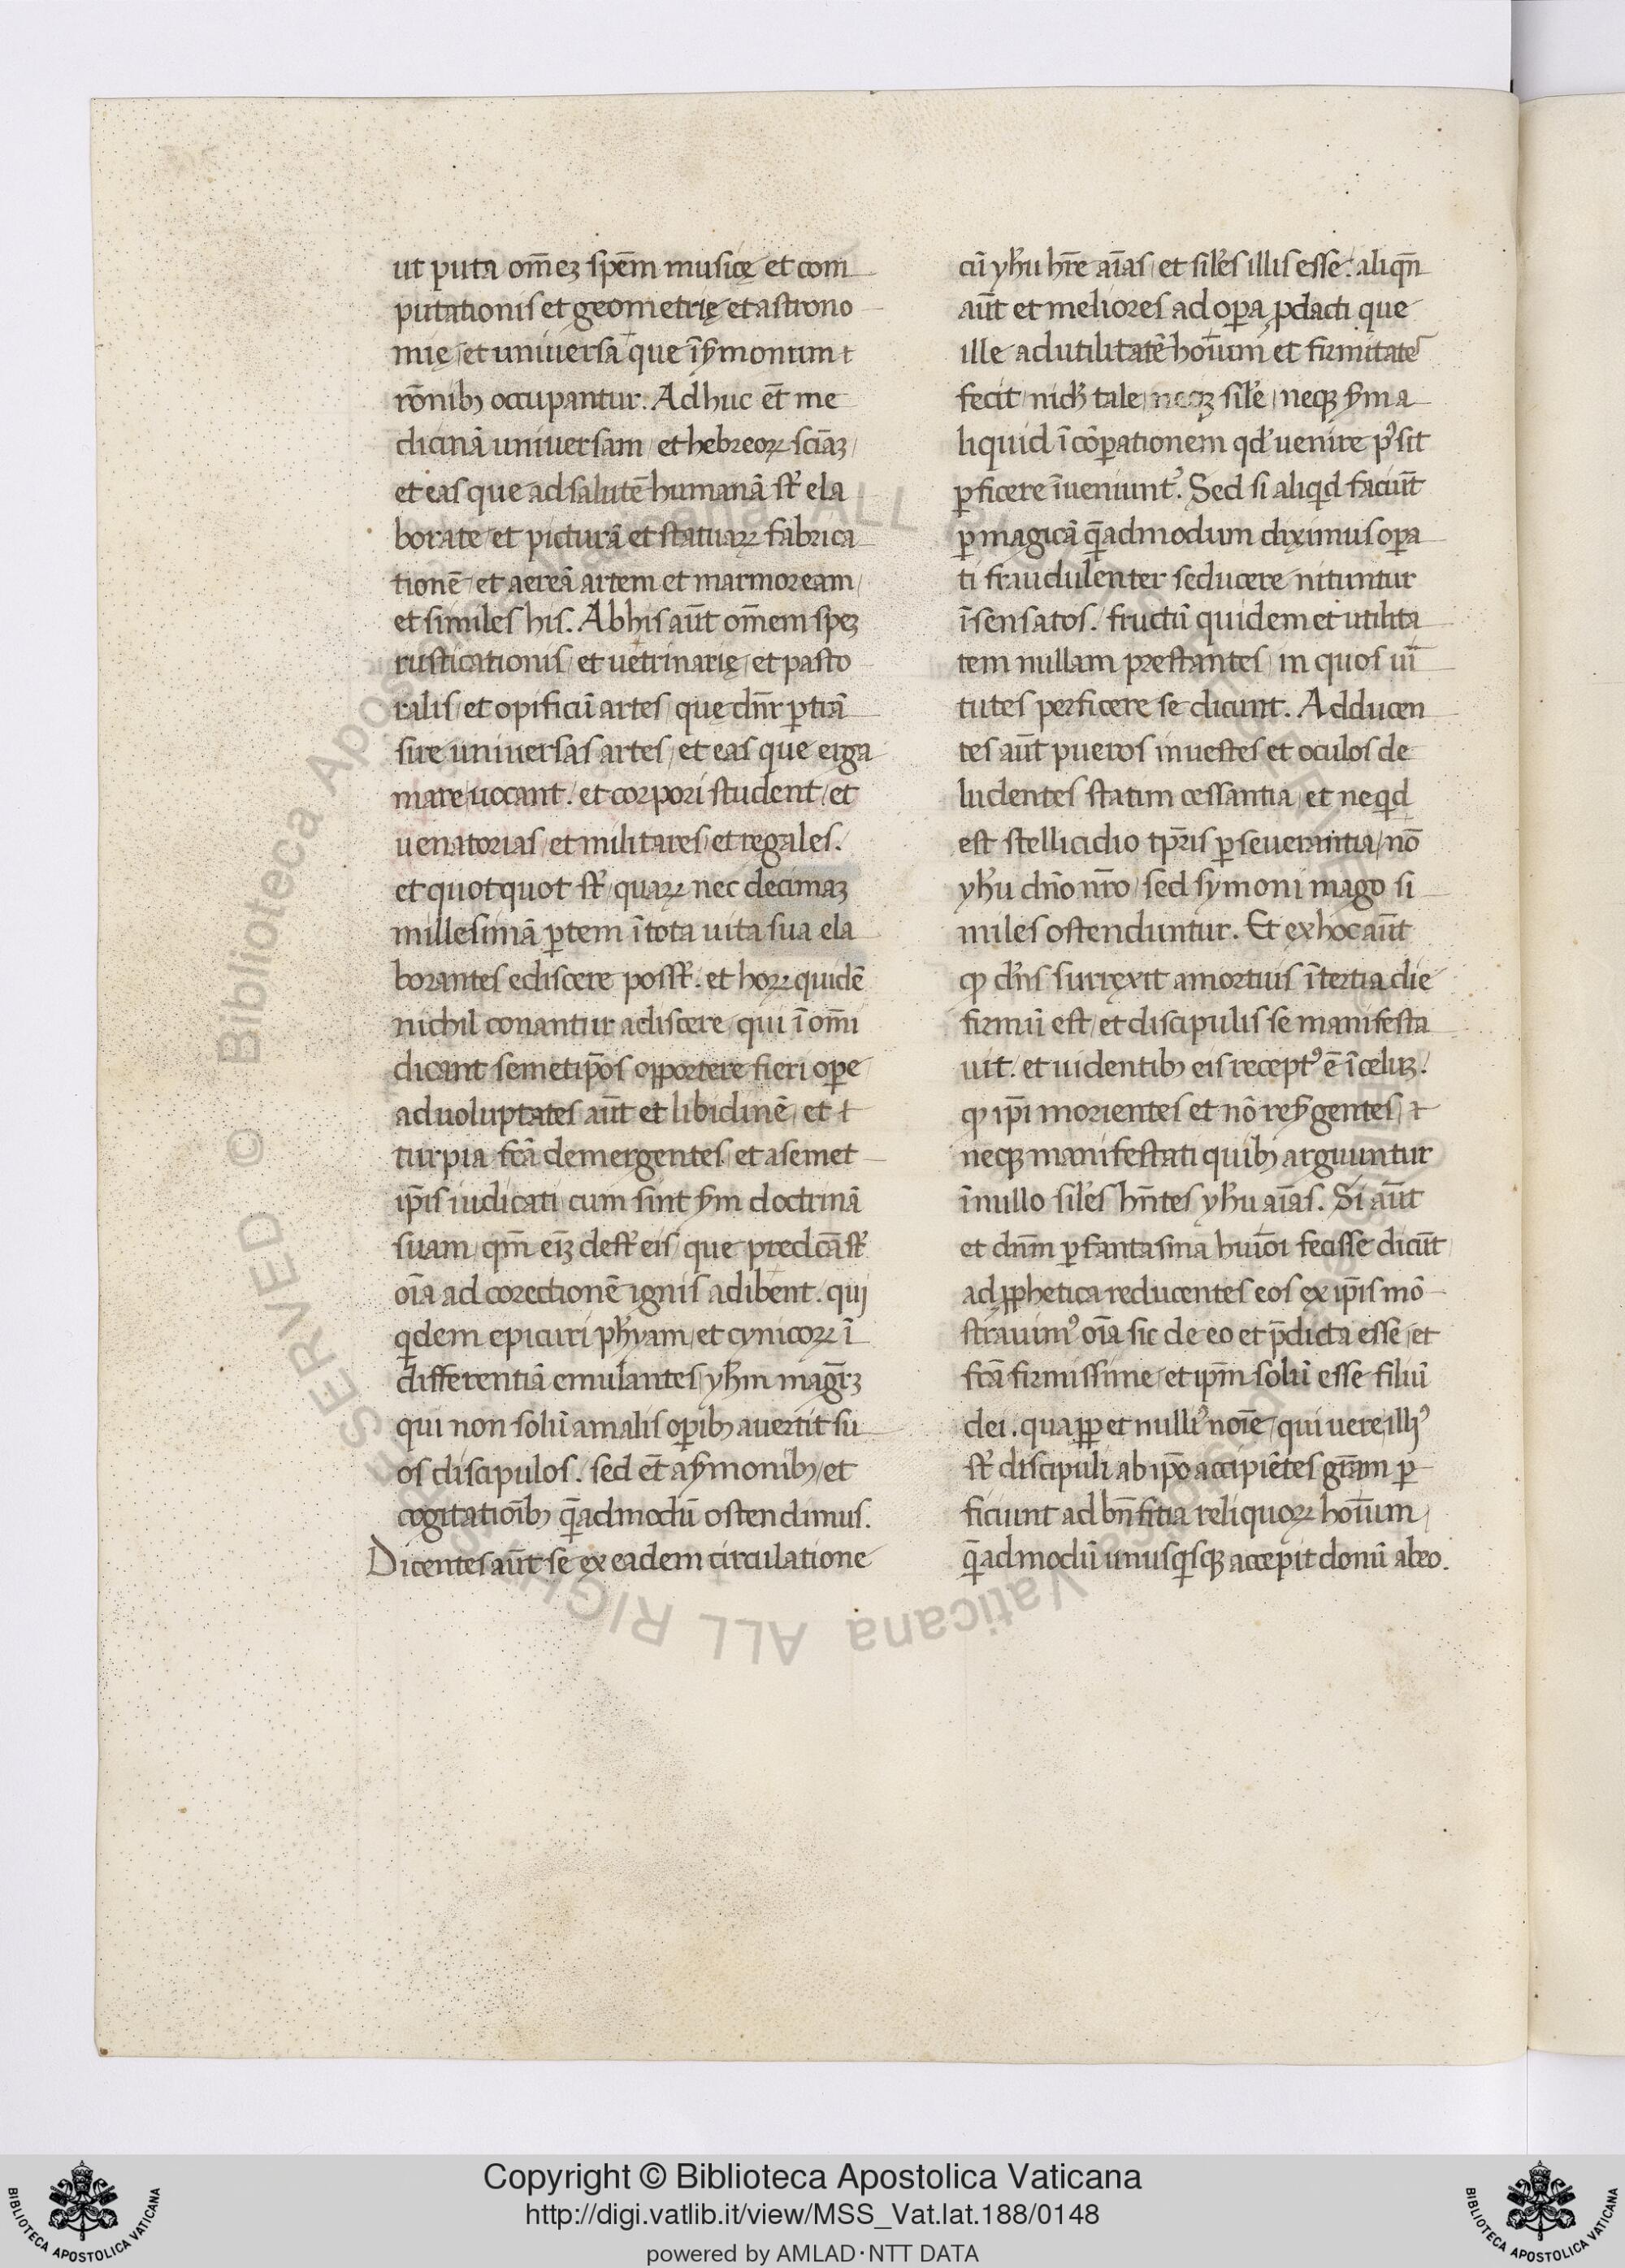 ut puta om̅eꝫ spe̅m musicę et com
putationis et geometrię et astrono
mię et uniuersa que i̅ ẜmonum ⁊
ro̅nibꝫ occupantur. Adhuc et̅ me
dicina̅ uniuersam et hebreoꝝ scia̅ꝫ
et eas que ad salute̅ humana̅ st̅ ela
borate et pictura̅ et statuaꝝ fabrica
tione̅ et aerea̅ artem et marmoream
et similes his. Ab his au̅t om̅em speꝫ
rusticationis et uetrinarię et pasto
ralis et opificu̅ artes que dn̅r ꝑtra̅
sire uniuersas artes et eas que erga
mare uocant. et corpori student et
uenatorias et militares et regales.
et quotquot st̅ quaꝝ nec decimaꝫ
millesima̅ ꝑtem i̅ tota uita sua ela
borantes ediscere posst̅. et hoꝝ quide̅
nichil conantur adiscere qui i̅ om̅i
dicant semetip̅os opportere fieri oꝑe
ad uoluptates au̅t et libidine̅ et ⁊
turpia fca̅ demergentes et a semet
ip̅is iudicati cum sint ẜm doctrina̅
suam qm̅ eiꝫ dest̅ eis que predca̅ st̅
oi̅a ad corectione̅ ignis adibent. qui
qͥdem epicuri ph̅yam et cynicoꝝ i̅
differentia̅ emulantes yh̅m magr̅ꝫ
qui non solu̅ a malis oꝑibꝫ auertit su
os discipulos. sed et̅ a ẜmonibꝫ et
cogitatio̅ibꝫ q̅admodu̅ ostendimus.
Dicentes au̅t se ex eadem circulatione
cu̅ yh̅u hr̅e ai̅as et sil̅es illis esse. aliqn̅
au̅t et meliores ad oꝑa ꝓdacti que
ille ad utilitate̅ hoi̅um et firmitate̅
fecit nich̅ tale neqꝫ sil̅e neqꝫ ẜm a
liquid i̅ co̅ꝑationem qd̅ uenire p̉sit
ꝑficere i̅ueniunt᷒. Sed si aliqͥd faciu̅t
ꝑ magica̅ q̅admodum diximus oꝑa
ti fraudulenter seducere nituntur
i̅sensatos. fructu̅ quidem et utilita
tem nullam prestantes in quos ui̅
tutes perficere se dicunt. Adducen
tes au̅t pueros inuestes et oculos de
ludentes statim cessantia et neqͥd
est stellicidio tp̅ris ꝑseuerantia no̅
yh̅u dn̅o nr̅o sed symoni mago si
miles ostenduntur. Et ex hoc au̅t
ꝙ dn̅s surrexit a mortuis i̅ tertia die
firmu̅ est et discipulis se manifesta
uit. et uidentibꝫ eis recept᷒ e̅ i̅ celuꝫ.
ꝙ ip̅i morientes et no̅ reẜgentes ⁊
neqꝫ manifestati quibꝫ arguuntur
i̅ nullo sil̅es hn̅tes yh̅u ai̅as. Si au̅t
et dn̅m ꝑ fantasma huio̅i fecisse dicu̅t
ad ꝓphetica reducentes eos ex ip̅is mo̅
strauim᷒ oi̅a sic de eo et p̅dicta esse et
fca̅ firmissime et ip̅m solu̅ esse filiu̅
dei. quaꝓp et nulli᷒ noi̅e qui uere illi᷒
st̅ discipuli ab ipo̅ accipie̅tes gra̅m ꝑ
ficiunt ad bn̅fitia reliquoꝝ hoi̅um
q̅admodu̅ unusqͥsqꝫ accepit donu̅ ab eo.
Copyright © Biblioteca Apostolica Vaticana
http://digi.vatlib.it/view/MSS_Vat.lat.188/0148
powered by AMLAD·NTT DATA